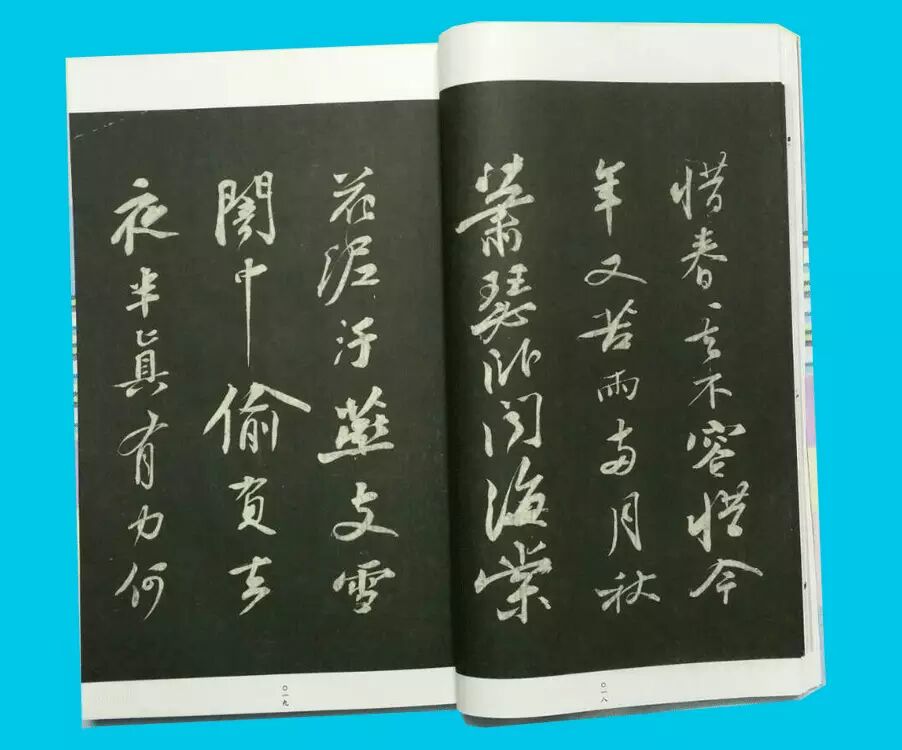 惜春〻去不容惜今
年又苦雨兩月秋
蕭瑟卧聞海棠
花泥汙燕支雪
闇中偷負去
夜半眞有力何
〇一八
〇一九